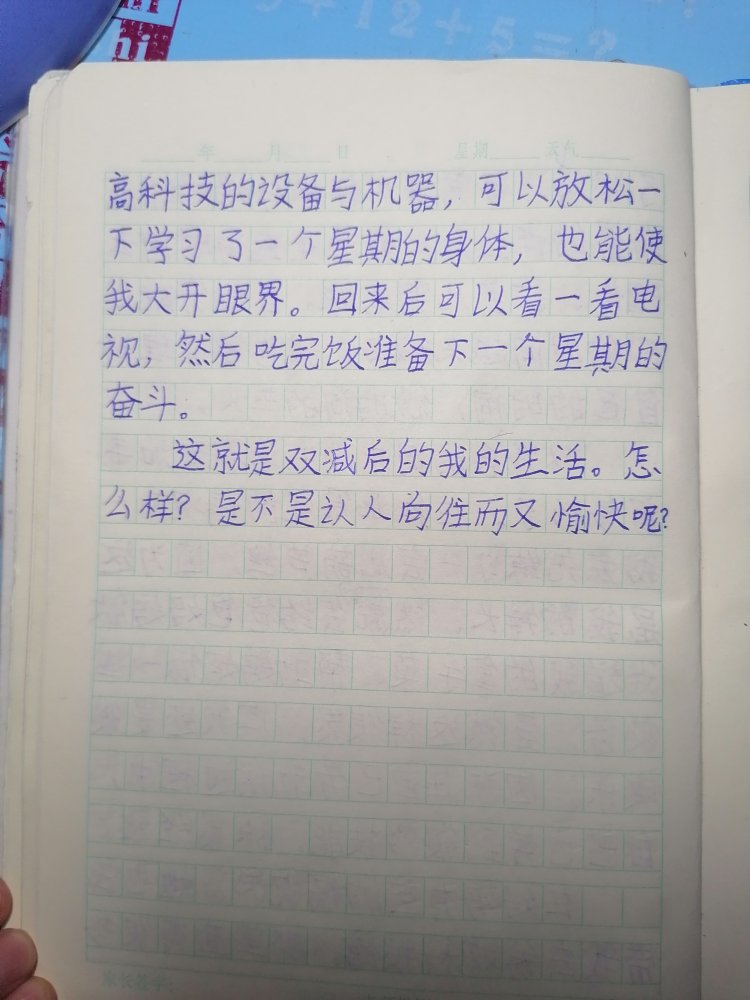 hi
5+12+5=?
hi
年 月 日 星期 天气
高科技的设备与机器，可以放松一
下学习了一个星期的身体，也能使
我大开眼界。回来后可以看一看电
视，然后吃完饭准备下一个星期的
奋斗。
这就是双减后的我的生活。怎
么样？是不是认人向往而又愉快呢？
家长签字：